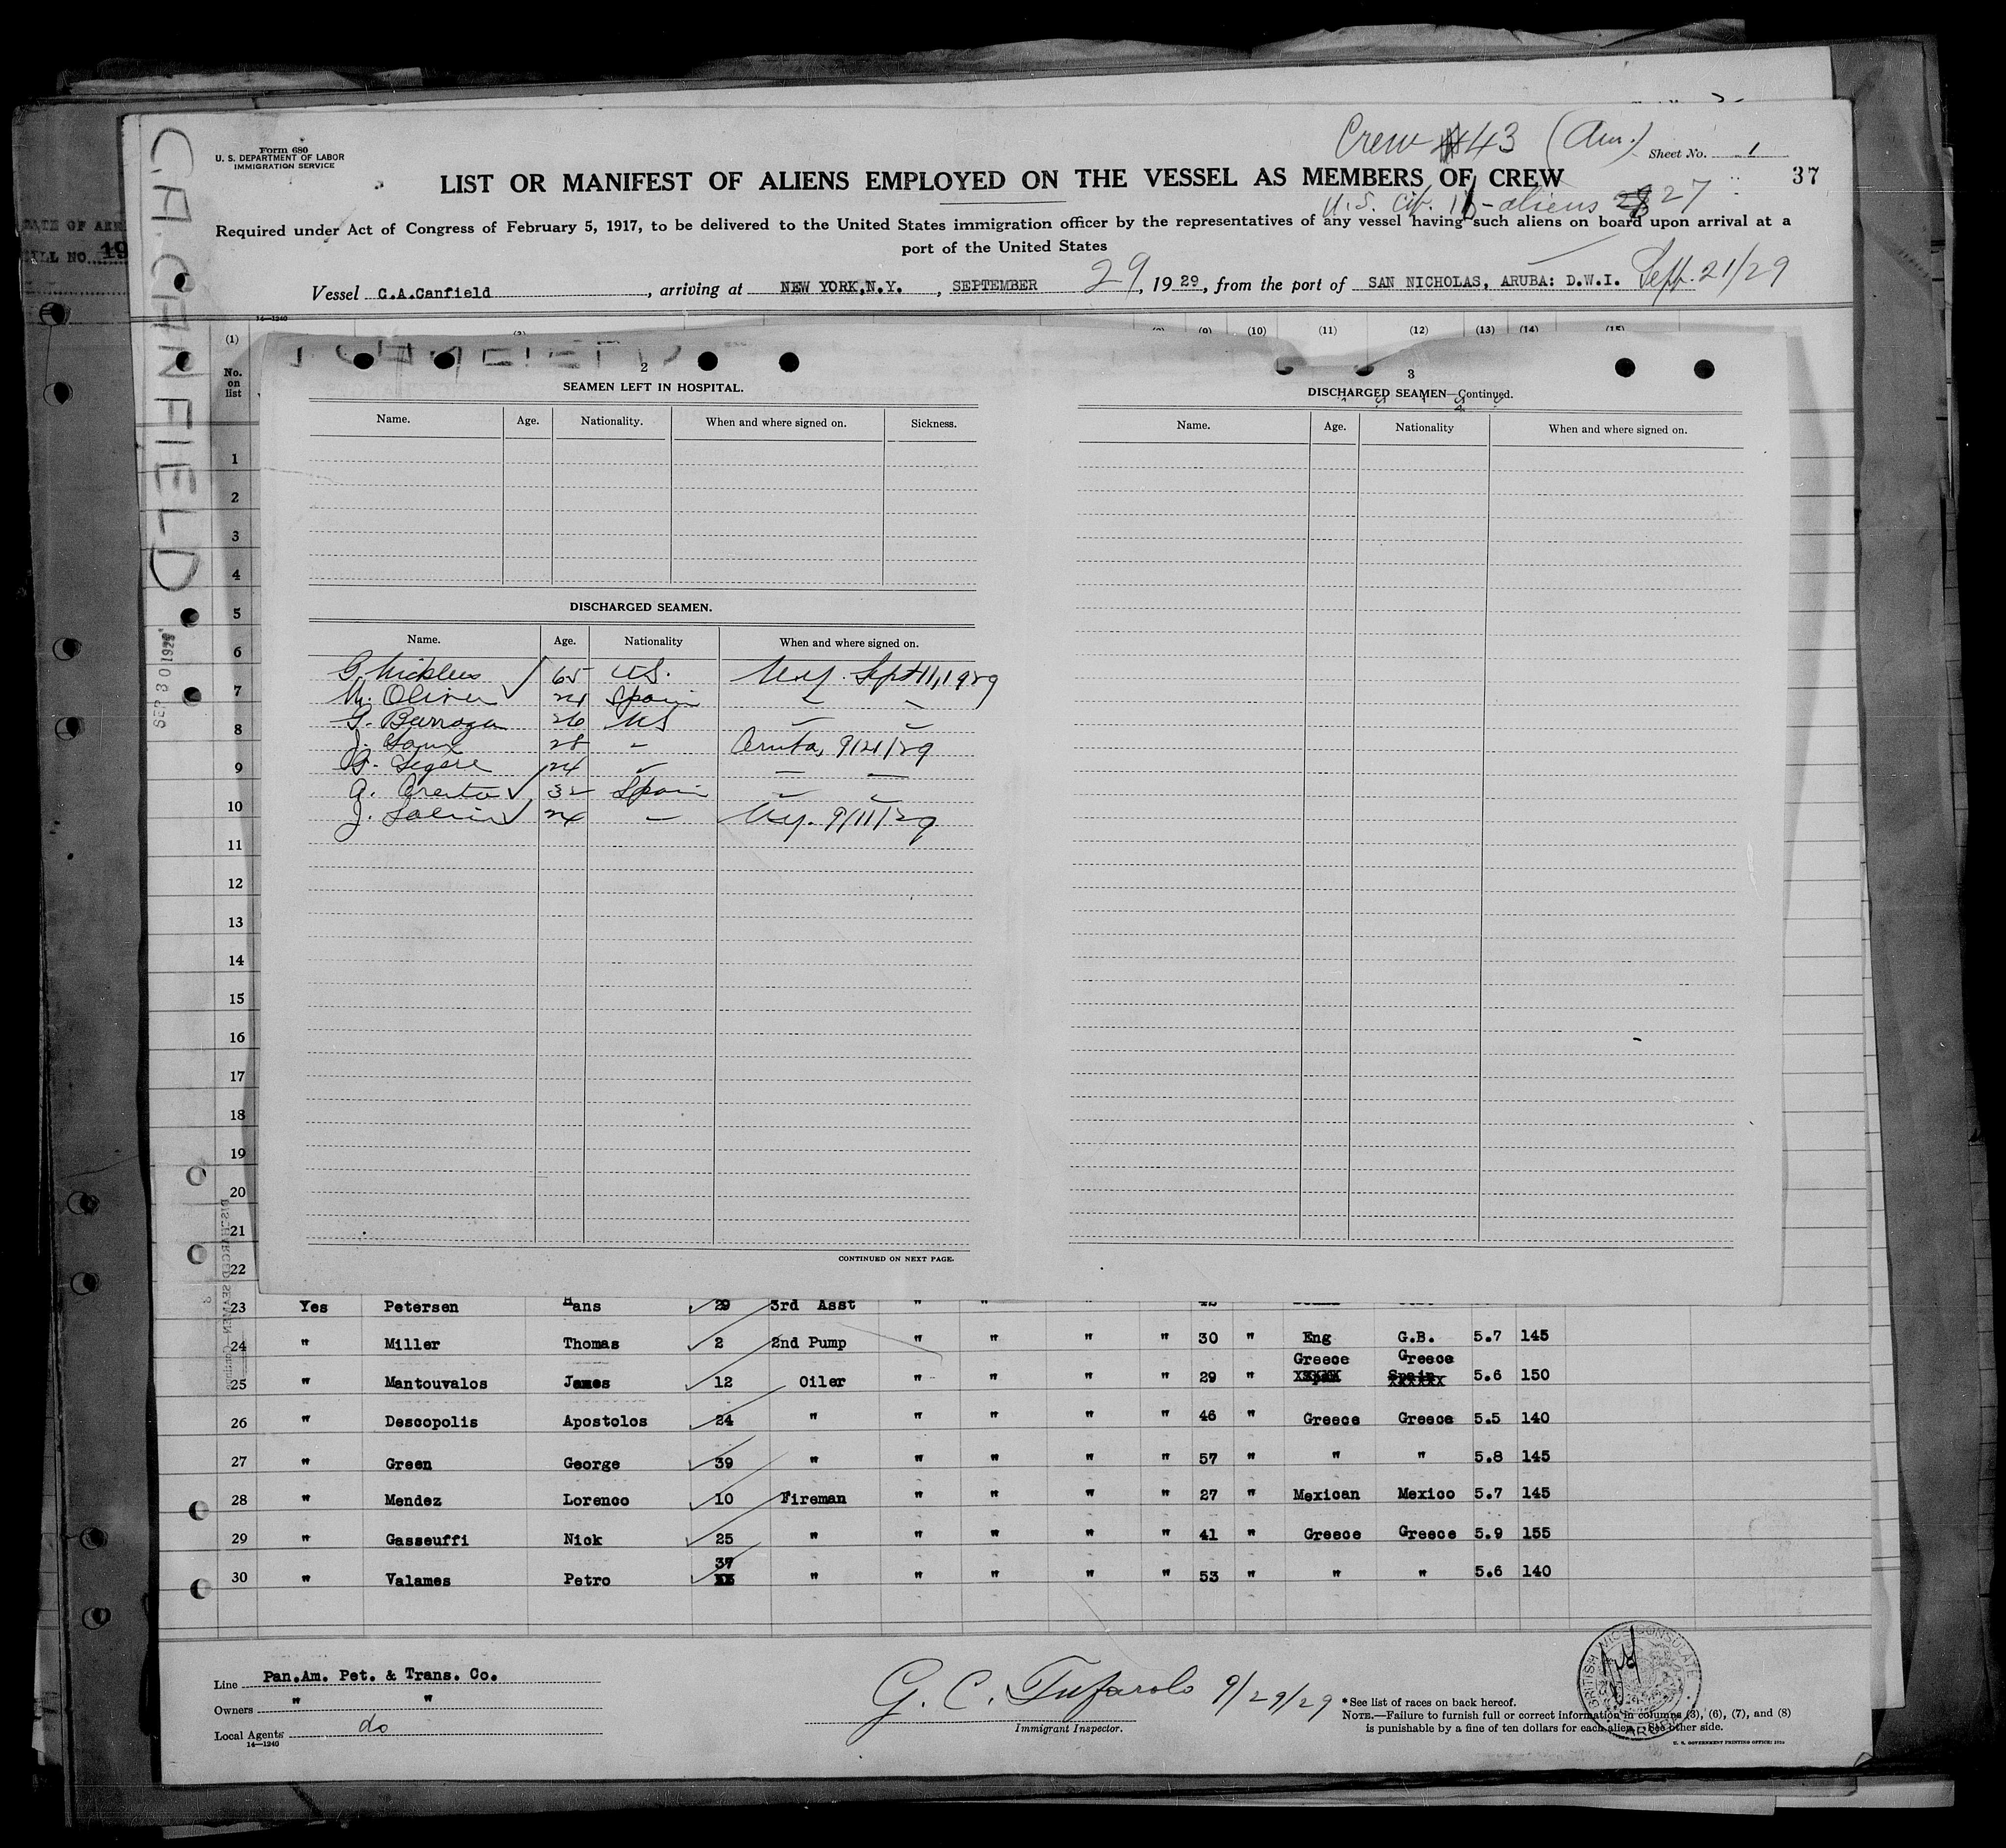 Form 680
U. S. DEPARTMENT OF LABOR
IMMIGRATION SERVICE
Crew 43 (Am.)
Sheet No. 1
LIST OR MANIFEST OF ALIENS EMPLOYED ON THE VESSEL AS MEMBERS OF CREW
37
U.S. Cit. 16 - aliens 27
Required under Act of Congress of February 5, 1917, to be delivered to the United States immigration officer by the representatives of any vessel having such aliens on board upon arrival at a
port of the United States
Vessel C.A.Canfield, arriving at NEW YORK,N.Y., SEPTEMBER 29, 1929, from the port of SAN NICHOLAS, ARUBA: D.W.I. Sept. 21/29
C.A. CANFIELD
SEP 30 1929
14-1240
(1) (9) (10) (11) (12) (13) (14) (15)
No. on list
2
SEAMEN LEFT IN HOSPITAL.
Name. Age. Nationality. When and where signed on. Sickness.
DISCHARGED SEAMEN.
Name. Age. Nationality When and where signed on.
65 U.S. N.Y. Sept 11, 1929
Oliver 24 Spain " "
26 US " "
J. 28 " Aruba, 9/21/29
24 " " "
A. 32 Spain " "
J. 24 " N.Y. 9/11/29
CONTINUED ON NEXT PAGE.
3
DISCHARGED SEAMEN—Continued.
Name. Age. Nationality When and where signed on.
1
2
3
4
5
6
7
8
9
10
11
12
13
14
15
16
17
18
19
20
21
22
23 Yes Petersen Hans 29 3rd Asst " " "
24 " Miller Thomas 2 2nd Pump " " " " 30 " Eng G.B. 5.7 145
Greece Greece
25 " Mantouvalos James 12 Oiler " " " " 29 " XXXXX Spain 5.6 150
26 " Descopolis Apostolos 24 " " " " " 46 " Greece Greece 5.5 140
27 " Green George 39 " " " " " 57 " " " 5.8 145
28 " Mendez Lorenco 10 Fireman " " " " 27 " Mexican Mexico 5.7 145
29 " Gasseuffi Nick 25 " " " " " 41 " Greece Greece 5.9 155
37
30 " Valames Petro XX " " " " " 53 " " " 5.6 140
Line Pan.Am. Pet. & Trans. Co.
Owners " "
Local Agents do
14-1240
G. C. Tufarolo 9/29/29
Immigrant Inspector.
*See list of races on back hereof.
NOTE.—Failure to furnish full or correct information in columns (3), (6), (7), and (8)
is punishable by a fine of ten dollars for each alien. See other side.
U. S. GOVERNMENT PRINTING OFFICE:
BRITISH VICE CONSULATE
ARUBA